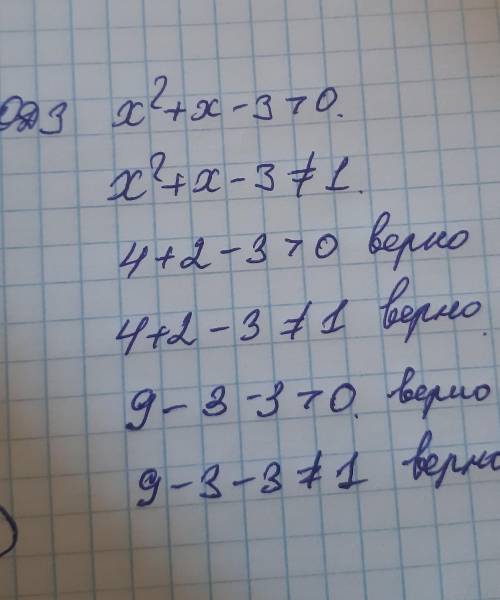 ОДЗ x²+x-3>0.
x²+x-3≠1.
4+2-3>0 верно
4+2-3≠1 верно.
9-3-3>0. верно
9-3-3≠1 верно